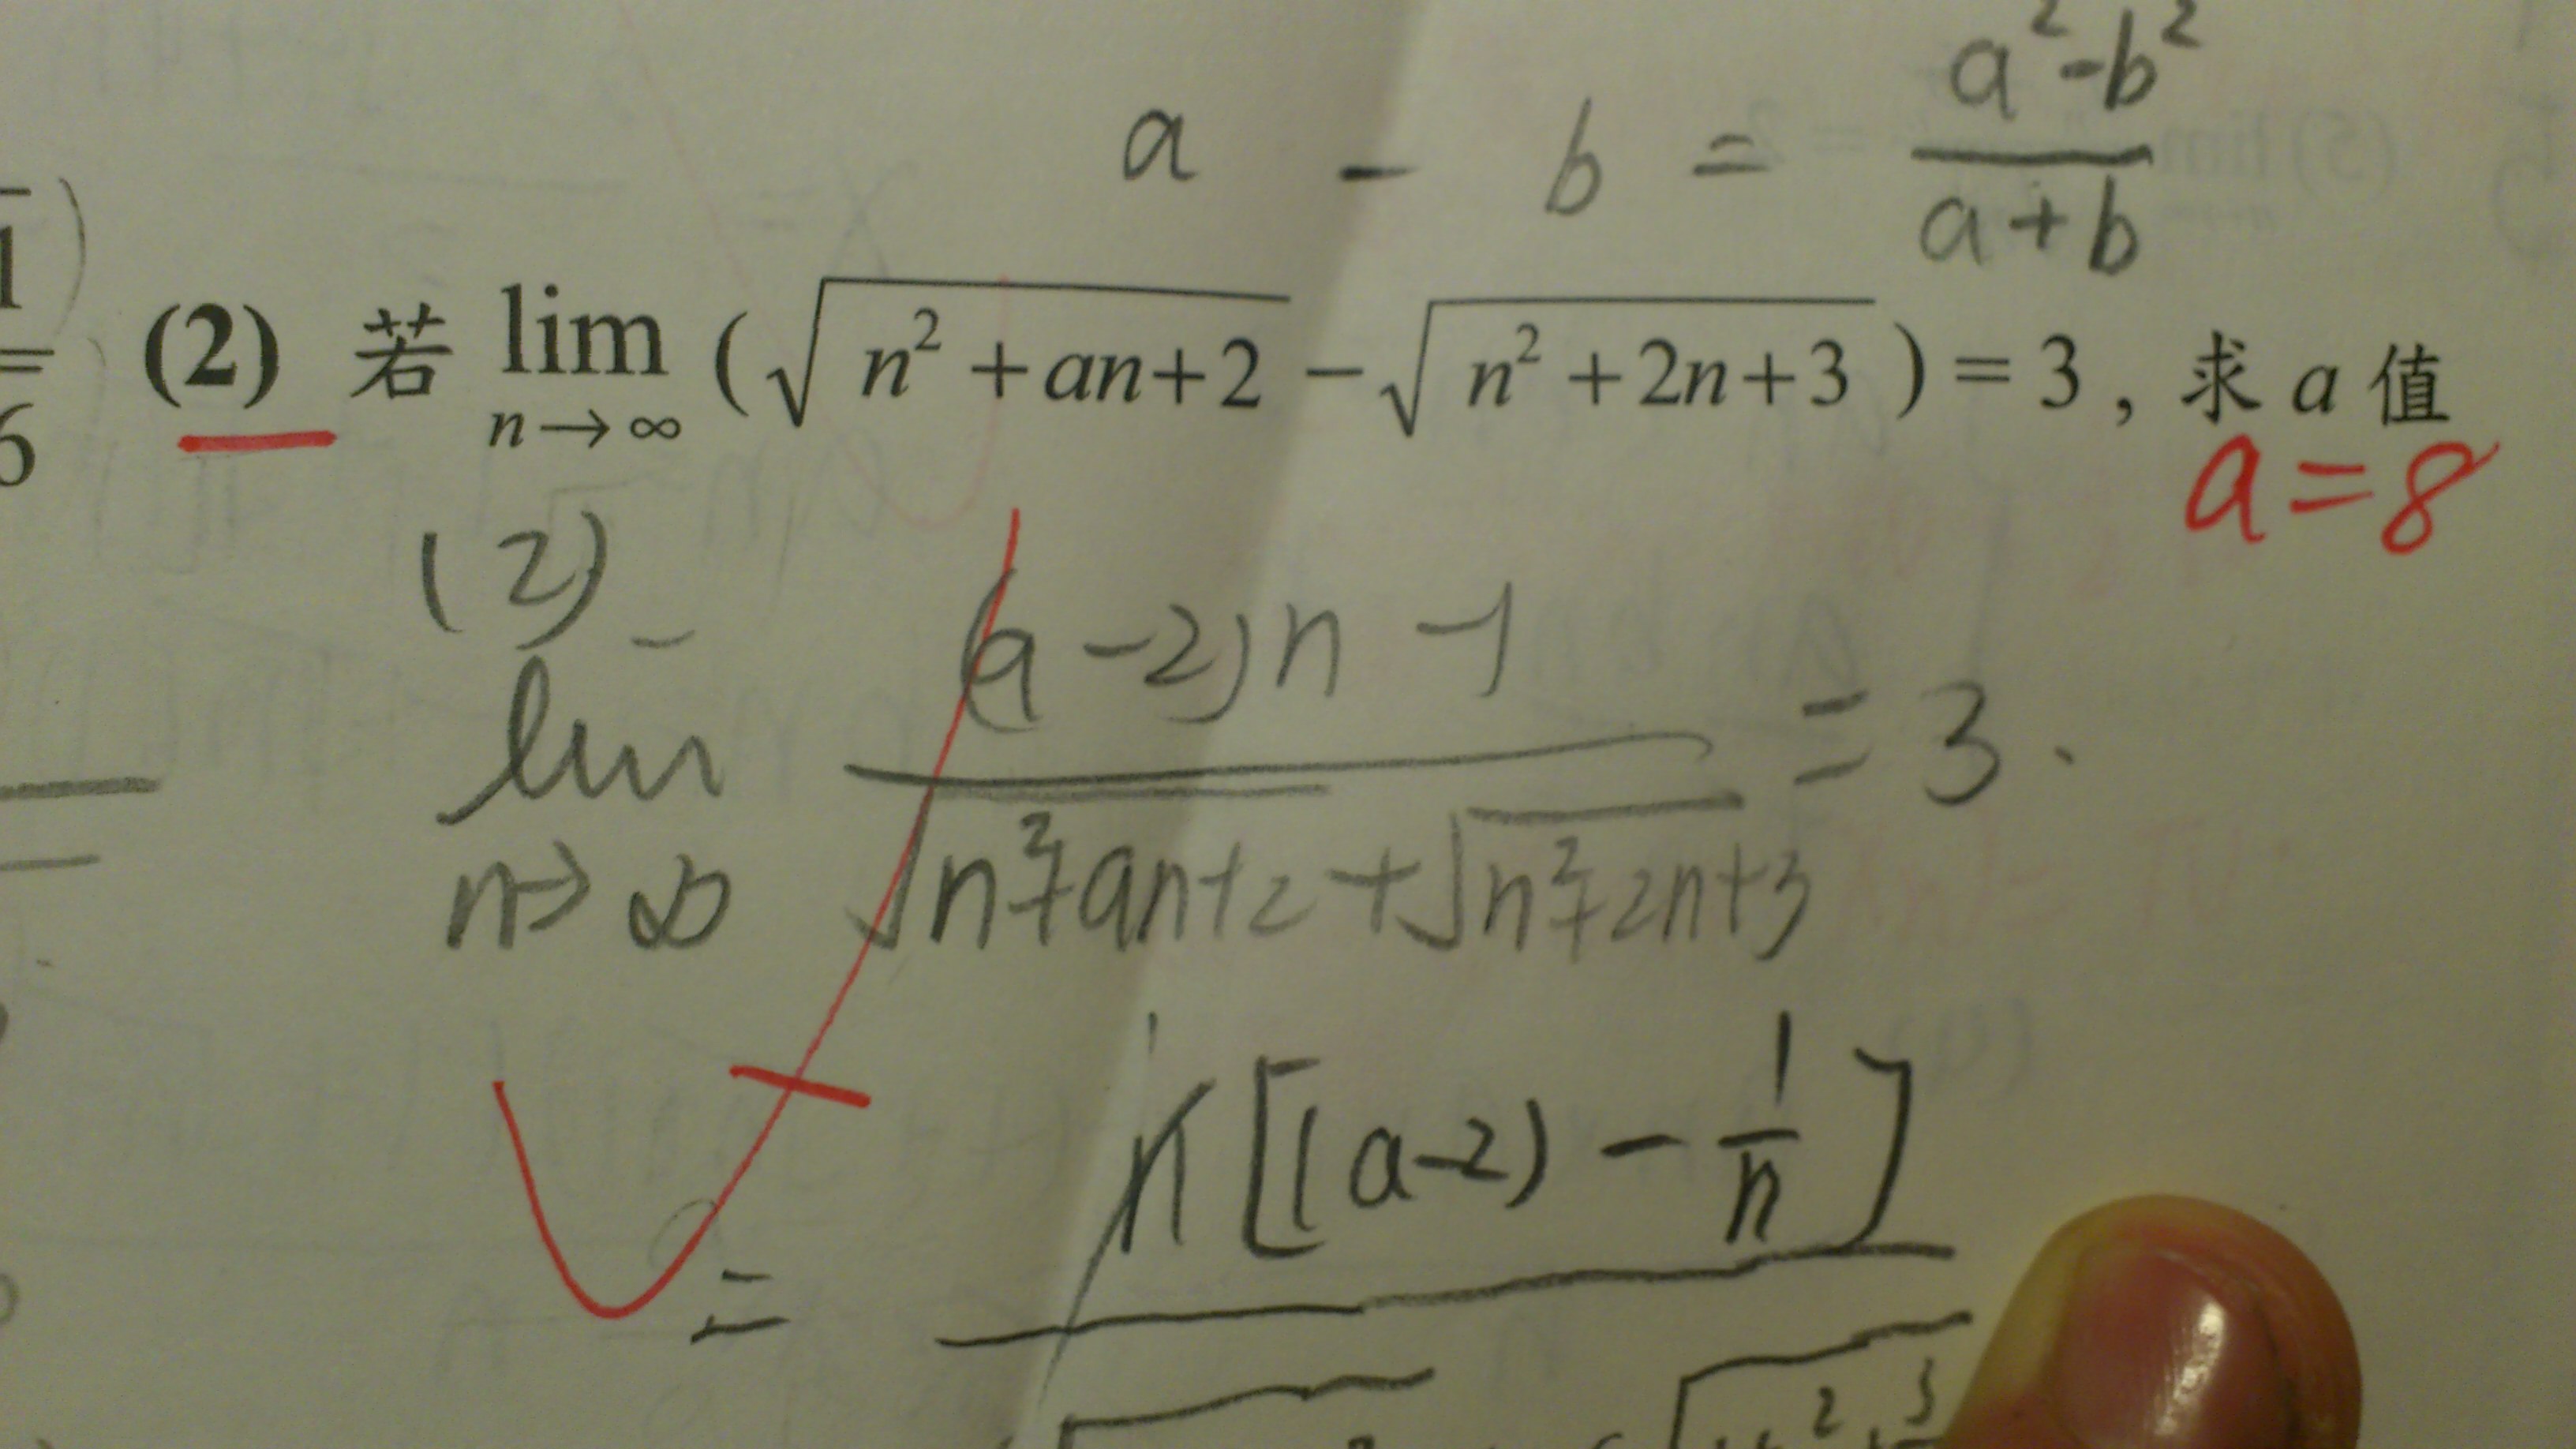 a - b = \frac{a^2-b^2}{a+b}
(2) 若 \lim_{n→∞} (\sqrt{n^2+an+2} - \sqrt{n^2+2n+3}) = 3, 求 a 值
a=8
(2)
\lim_{n→∞} \frac{(a-2)n-1}{\sqrt{n^2+an+2}+\sqrt{n^2+2n+3}} = 3.
= n[(a-2) - \frac{1}{n}]